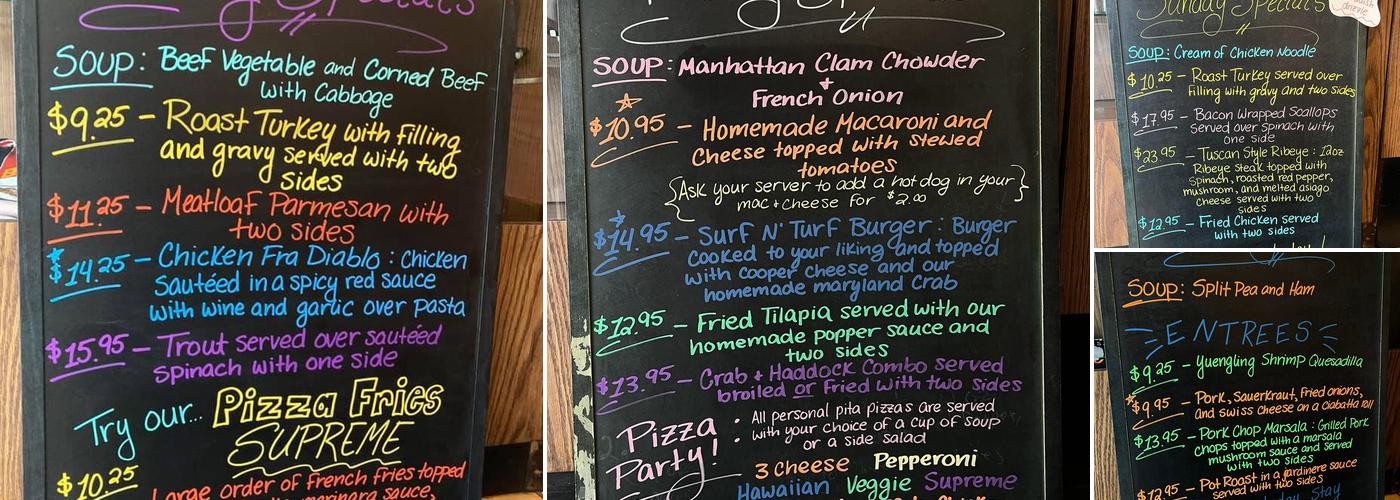 Specials
SOUP: Beef Vegetable and Corned Beef
with Cabbage
$9.25 - Roast Turkey with filling
and gravy served with two
sides
$11.25 - Meatloaf Parmesan with
two sides
$14.25 - Chicken Fra Diablo: Chicken
Sautéed in a spicy red sauce
with wine and garlic over pasta
$15.95 - Trout served over sautéed
Spinach with one side
Try our... Pizza Fries
SUPREME
$10.25
Large order of French Fries topped
marinara sauce,
SOUP: Manhattan Clam Chowder
+
French Onion
$10.95 - Homemade Macaroni and
Cheese topped with stewed
tomatoes
{Ask your server to add a hot dog in your
mac + cheese for $2.00}
$14.95 - Surf N' Turf Burger: Burger
cooked to your liking and topped
with cooper cheese and our
homemade maryland Crab
$12.95 - Fried Tilapia served with our
homemade popper sauce and
two sides
$13.95 - Crab + Haddock Combo served
broiled or Fried with two sides
Pizza Party!: All personal pita pizzas are served
with your choice of a cup of soup
or a side salad
3 Cheese Pepperoni
Hawaiian Veggie Supreme
Sunday Specials
drizzle
SOUP: Cream of Chicken Noodle
$10.25 - Roast Turkey served over
Filling with gravy and two sides
$17.95 - Bacon Wrapped Scallops
Served over Spinach with
one side
$23.95 - Tuscan Style Ribeye: 12oz
Ribeye Steak topped with
Spinach, roasted red pepper,
mushroom, and melted asiago
Cheese served with two
sides
$12.95 - Fried Chicken served
with two sides
SOUP: Split Pea and Ham
ENTREES
$9.25 - Yuengling Shrimp Quesadilla
$9.95 - Pork, Sauerkraut, Fried onions,
and swiss cheese on a Ciabatta roll
$13.95 - Pork Chop Marsala: Grilled Pork
chops topped with a marsala
mushroom sauce and served
with two sides
$12.95 - Pot Roast in a jardinere sauce
served with two sides